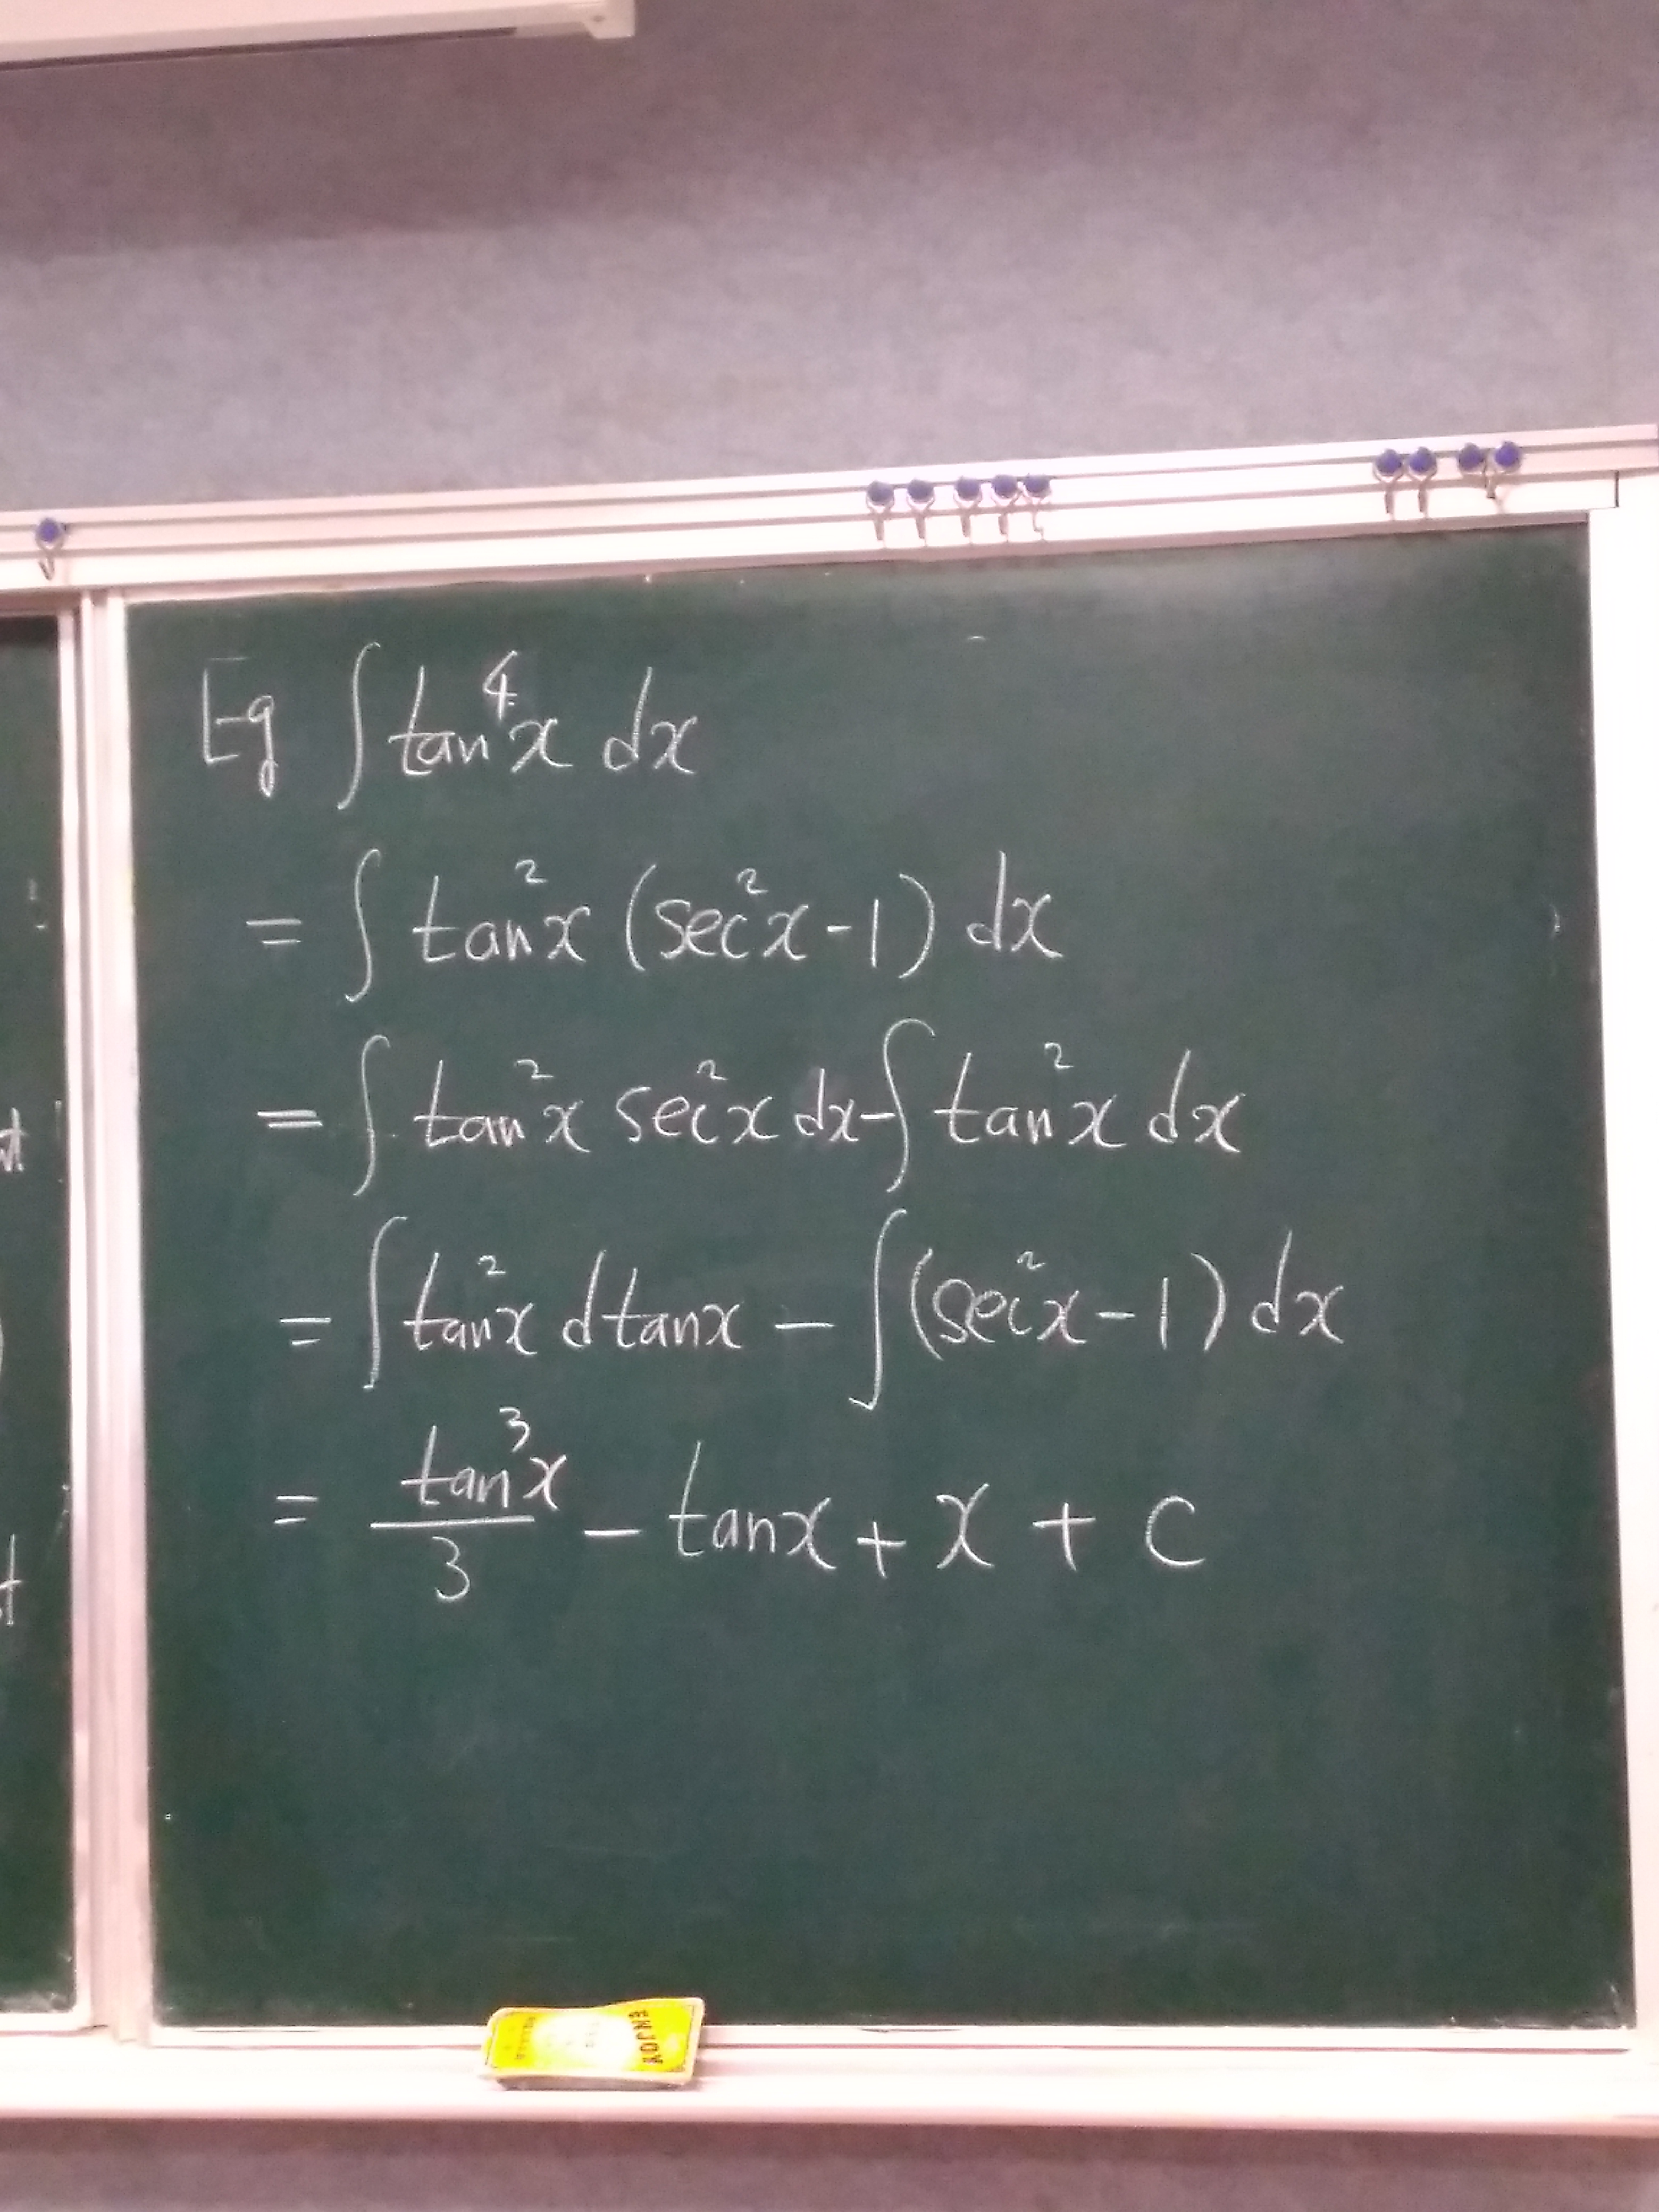 Eg ∫ tan⁴x dx
= ∫ tan²x (sec²x - 1) dx
= ∫ tan²x sec²x dx - ∫ tan²x dx
= ∫ tan²x dtanx - ∫ (sec²x - 1) dx
= tan³x/3 - tanx + x + c